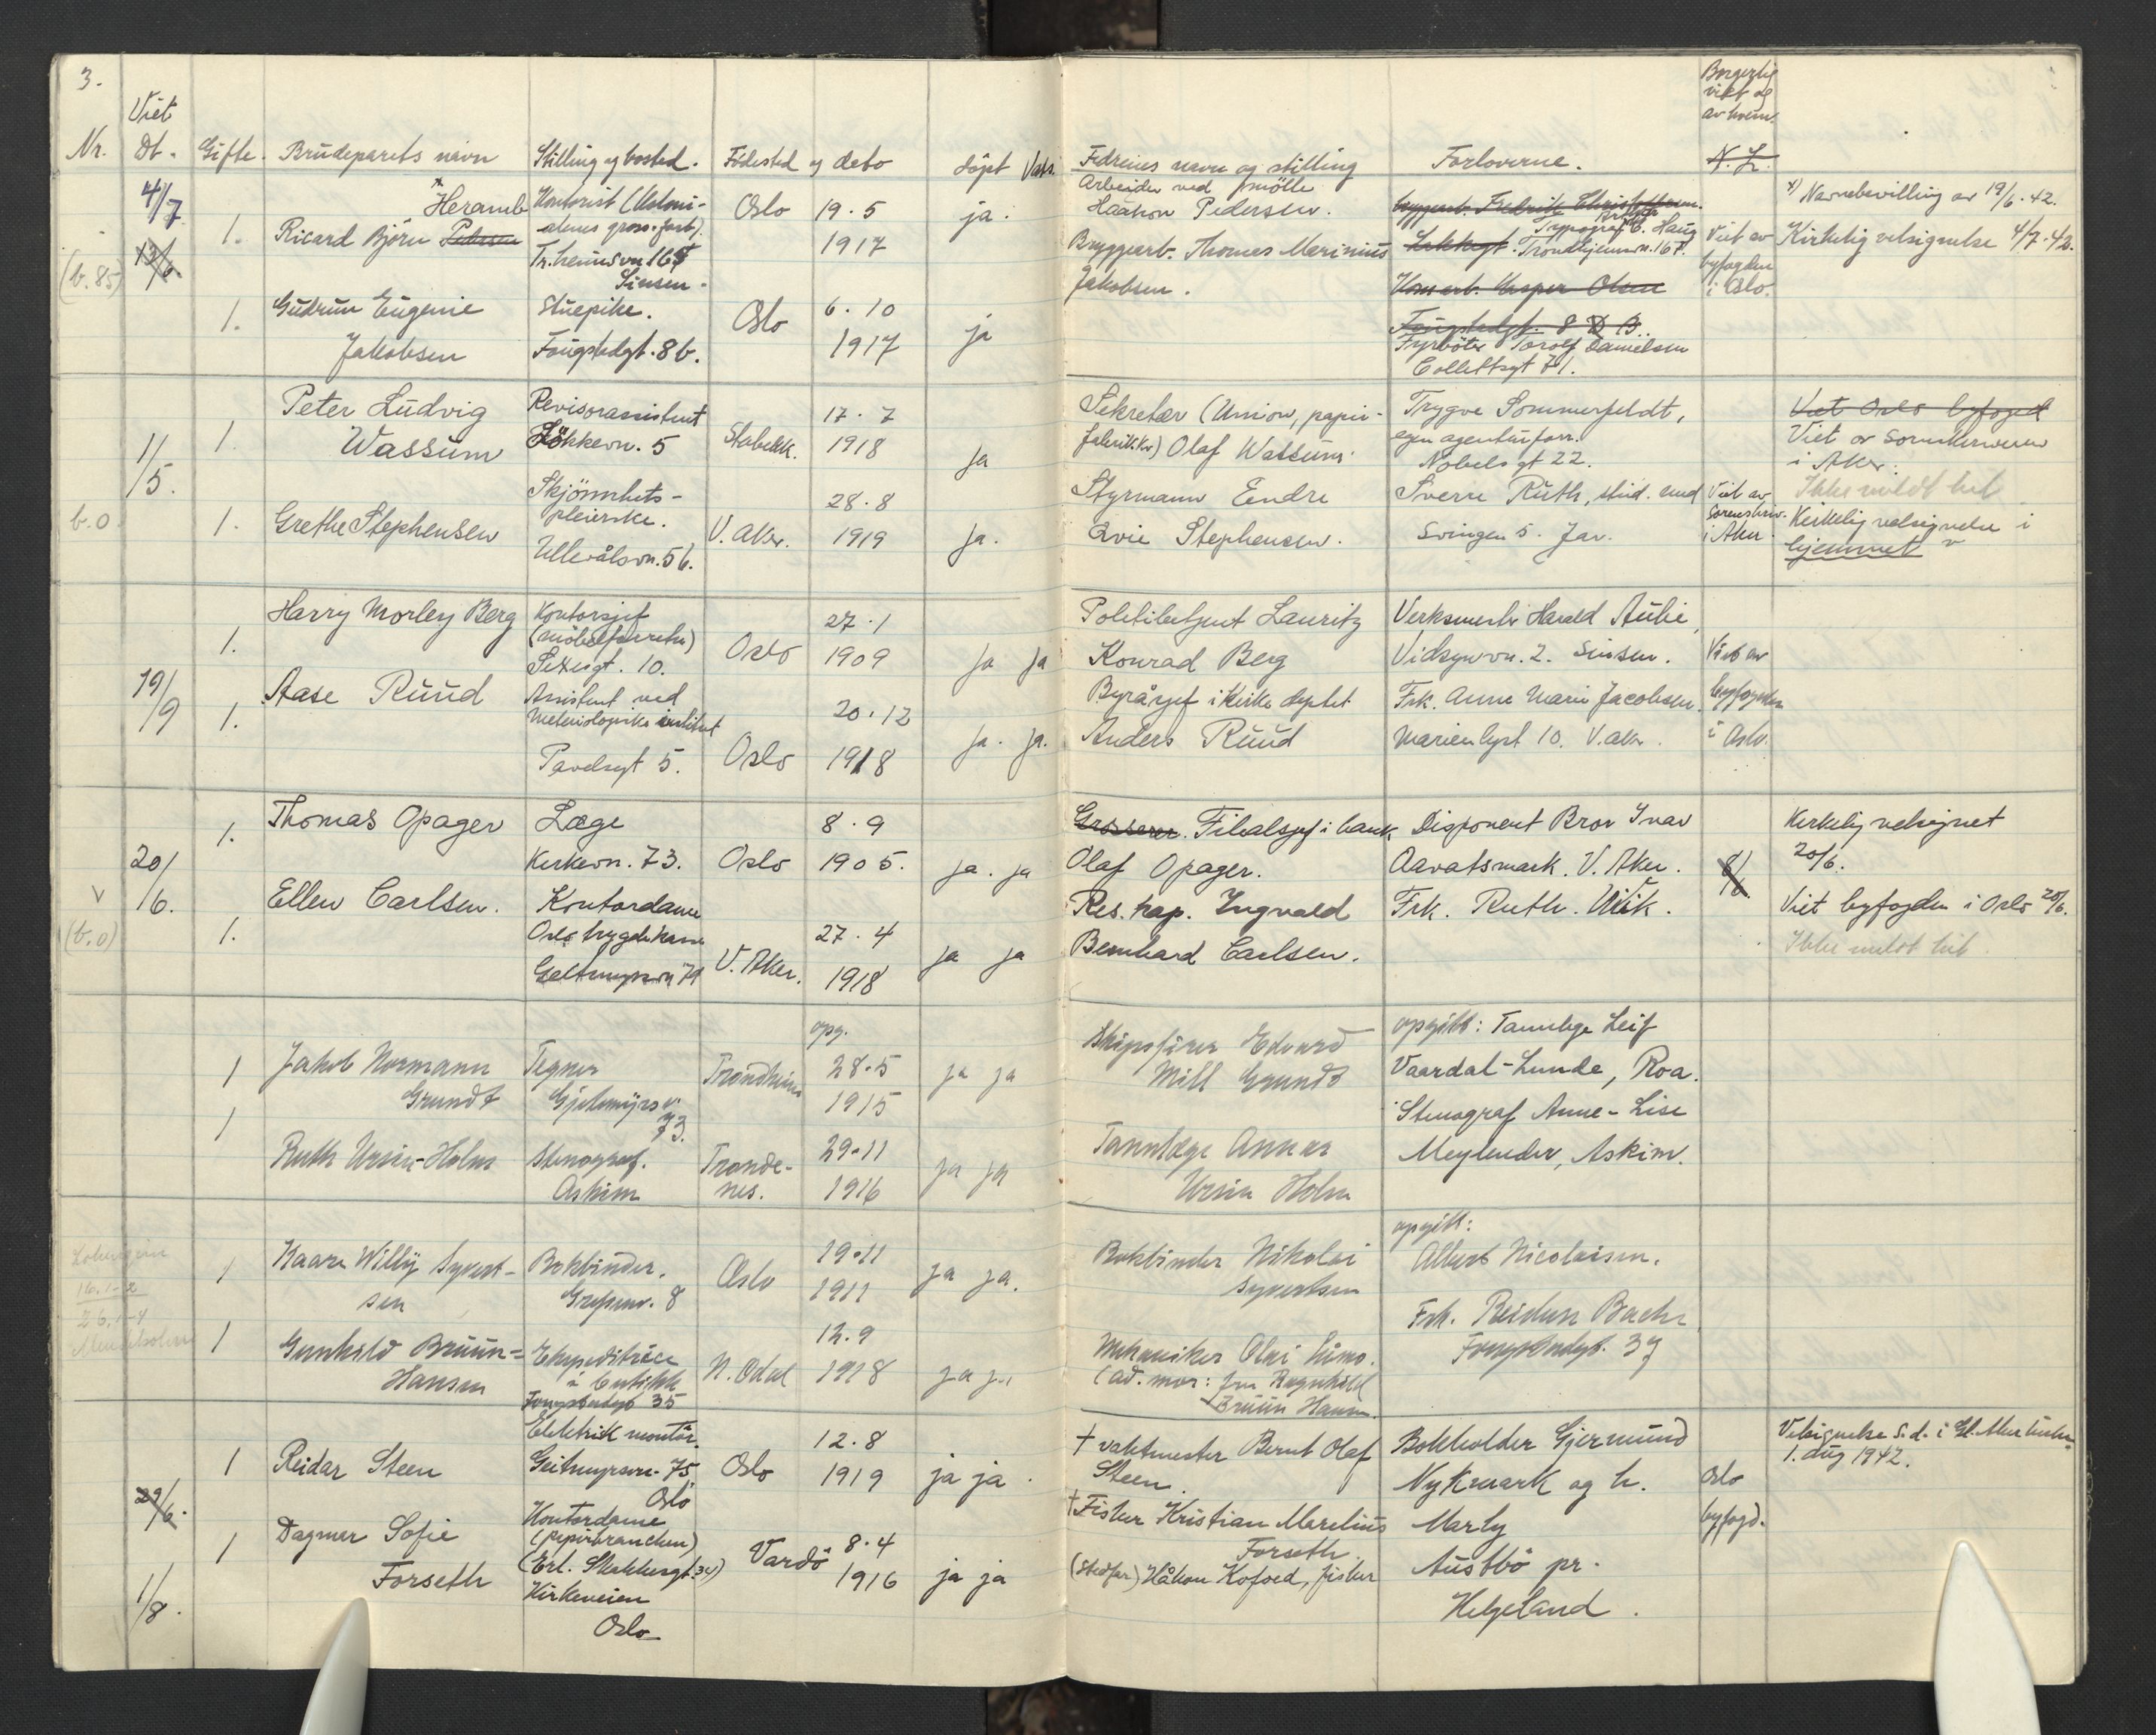 3.
Nr.
Viet
dt.
Gifte.
Brudeparets navn
Stilling og bosted.
Födested og dato
döpt
Fedrenes navn og stilling
Forloverne.
Borgerlig
viet og
av hvem.
4/7
13/6.
(b. 85)
1.
Heramb
Ricard Björn Pedersen
Kontorist
Tr.heimsvn 167
Sinsen.
Oslo
19. 5
1917
ja.
Arbeider ved mölle
Haakon Pedersen.
Typograf Haug
Trondhjemsvn. 167.
Viet av
byfogden
i Oslo.
x) Navnebevilling av 19/6. 42.
Kirkelig velsignelse 4/7. 42.
1.
Gudrun Eugenie
Jakobsen
Stuepike.
Fougstadgt. 8 b.
Oslo
6. 10
1917
ja
Bryggearb. Thomas Marinius
Jakobsen.
Kasper Olsen
Fougstadgt. 8 B.
Fyrböter Torolf Danielsen
Collettsgt 71.
11/5.
b. 0
1.
Peter Ludvig
Wassum
Revisorassistent
Lökkevn. 5
Stabekk.
17. 7
1918
ja
Sekretær (Union, papir-
fabrikker) Olaf Wassum.
Trygve Sommerfeldt,
egen agenturforr.
Nobels gt 22.
Viet Oslo byfoged
Viet av sorenskriveren
i Aker.
Ikke meldt hit
1.
Grethe Stephensen
Skjönnhets-
pleierske.
Ullevålsvn. 56.
V. Aker.
28. 8
1919
ja.
Styrmann Endre
Qvie Stephensen.
Sverre Ruth, stud. med
Svingen 5. Jar.
Viet av
sorenskriv.
i Aker.
Kirkelig velsignelse i
hjemmet
19/9
1.
Harry Morley Berg
Kontorsjef
10.
Oslo
27. 1
1909
ja ja
Politibetjent Lauritz
Konrad Berg
Verksmester Harald Aubie,
Vidsynvn. 2. Sinsen.
Viet av
byfogden
i Oslo.
1.
Aase Ruud
Assistent ved
Meteorologiske institut
Pavelsgt 5.
Oslo
20. 12
1918
ja. ja.
Byråsjef i Kirke deptet
Anders Ruud
Frk. Anne Marie Jacobsen.
Marienlyst 10. V. aker.
20/6.
(b. 0)
1.
Thomas Opager
Læge
Kirkevn. 73.
Oslo
8. 9
1905.
ja. ja
Grosserer. Filialsjef i bank
Olaf Opager.
Disponent Bror Ivar
Aavatsmark. V. Aker.
Kirkelig velsignet
20/6.
1.
Ellen Carlsen.
Kontordame
Oslo trygdekasse
V. Aker.
27. 4
1918
ja ja
Res. kap. Ingvald
Bernhard Carlsen.
Frk. Ruth Wiik.
Viet byfogden i Oslo 20/6.
Ikke meldt hit
1
Jakob Normann
Grundt
Tegner
73.
Trondheim
opg.
28. 5
1915
ja ja
Skipsförer Edvard
Mill Grundt
opgitt: Tannlege Leif
Vaardal-Lunde, Roa.
1
Ruth Ursin-Holm
Stenograf.
Askim
Tronde-
nes.
29. 11
1916
ja ja
Tannlæge Annar
Ursin Holm
Stenograf Anne-Lise
Meylender, Askim.
1
Kaare Willy Syvert-
sen
Bokbinder.
Grefsenv. 8
Oslo
19. 11
1911
ja ja.
Bokbinder Nikolai
Syvertsen
opgitt:
Albert Nicolaisen.
1
Gunhild Bruun-
Hansen
Ekspeditrice
i butikk
Fougstadgt 35
N. Odal
12. 9
1918
ja ja
Mekaniker Olai
(ad. mor: fru Ragnhild
Bruun Hansen.
Frk. Reidun Bache
Fougstadgt. 37
29/6.
1/8.
1
Reidar Steen
Elektrik montör.
Geitmyrsvn. 75
Oslo
Oslo
12. 8
1919
ja ja
† vaktmester Bernt Olaf
Steen.
Bokholder Gjermund
Nykmark og h.
Oslo
byfogd.
Velsignelse s. d. i Gl. Aker kirke
1. aug 1942.
1
Dagmar Sofie
Forseth
Kontordame
(papirbranchen)
Kirkeveien
Oslo
Vardö
8. 4
1916
ja ja
† Fisker Kristian Marelius
Forseth.
(Stedfar) Håkon Kofoed, fisker
Marly
Austbö pr.
Helgeland.